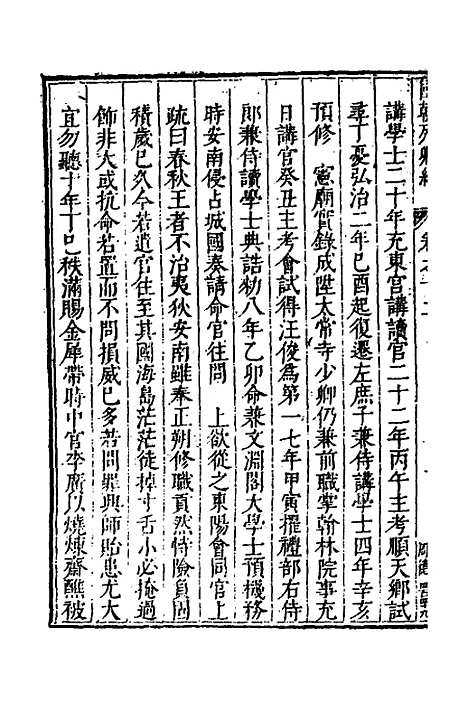 國朝列卿紀
講學士二十年充東宮講讀官二十二年丙午主考順天鄉試
尋丁憂弘治二年己酉起復遷左庶子兼侍講學士四年辛亥
預修　憲廟實錄成陞太常寺少卿仍兼前職掌翰林院事充
日講官癸丑主考會試得汪俊為第一七年甲寅擢禮部右侍
郎兼侍讀學士典誥勑八年乙卯命兼文淵閣大學士預機務
時安南侵占城國奏請命官往問　上欲從之東陽會同官上
疏曰春秋王者不治夷狄安南雖奉正朔修職貢然恃險負固
積歲已久今若遣官往至其國海島茫茫徒掉寸舌小必掩過
飾非大或抗命若置而不問損威已多若問罪興師貽患尤大
宜勿聽十年丁巳秩滿賜金犀帶時中官李廣以燒煉齋醮被